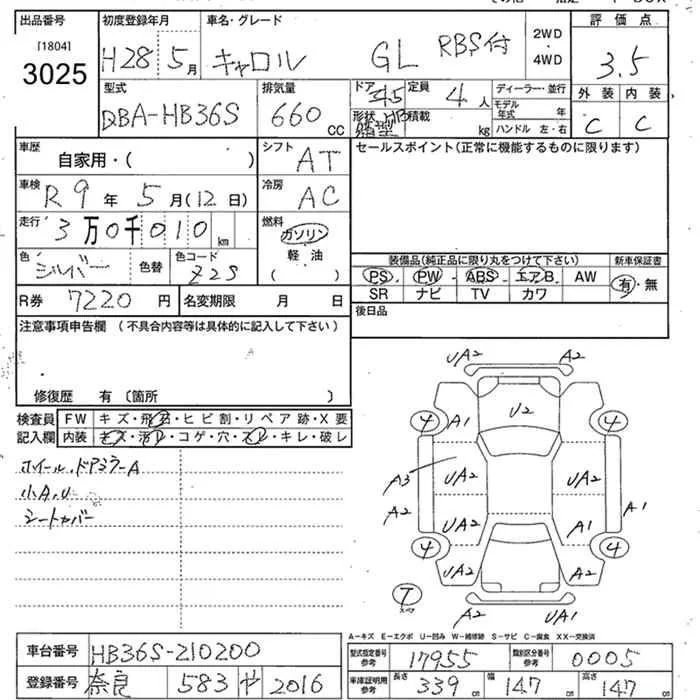 出品番号 初度登録年月 車名・グレード 2WD・4WD 評価点
[1804]
3025
H28 5月 キャロル GL RBS付 3.5
型式 排気量 ドア 定員 ディーラー・並行 外装 内装
DBA-HB36S 660cc 5 4人 モデル年式 年 C C
形状 積載 kg ハンドル 左・右
車歴 シフト セールスポイント(正常に機能するものに限ります)
自家用・( ) AT
車検 冷房
R9年5月(12日) AC
走行 燃料
3万0千010km ガソリン
色 色替 色コード 軽油
シルバー Z2S ( )
装備品(純正品に限り丸をつけて下さい) 新車保証書
PS PW ABS エアB AW 有・無
SR ナビ TV カワ
R券 7220円 名変期限 月 日
後日品
注意事項申告欄 (不具合内容等は具体的に記入して下さい)
修復歴 有 〔箇所 〕
検査員 FW キズ・飛石・ヒビ割・リペア跡・X要
記入欄 内装 キズ・汚レ・コゲ・穴・スレ・キレ・破レ
ホイール・ドアミラーA
小A,U
シートカバー
UA2 A2
4 A1 U2 4
A3 UA2 UA2
A2 UA2 A1 A1
4 4
UA2 A2
T
スペア
A2 UA1
A-キズ E-エクボ U-凹み W-補修跡 S-サビ C-腐食 XX-交換済
車台番号 HB36S-210200
型式指定番号 参考 17955 類別区分番号 参考 0005
登録番号 奈良 583 や 2016
車庫証明用 参考 長さ 339cm 幅 147cm 高さ 147cm